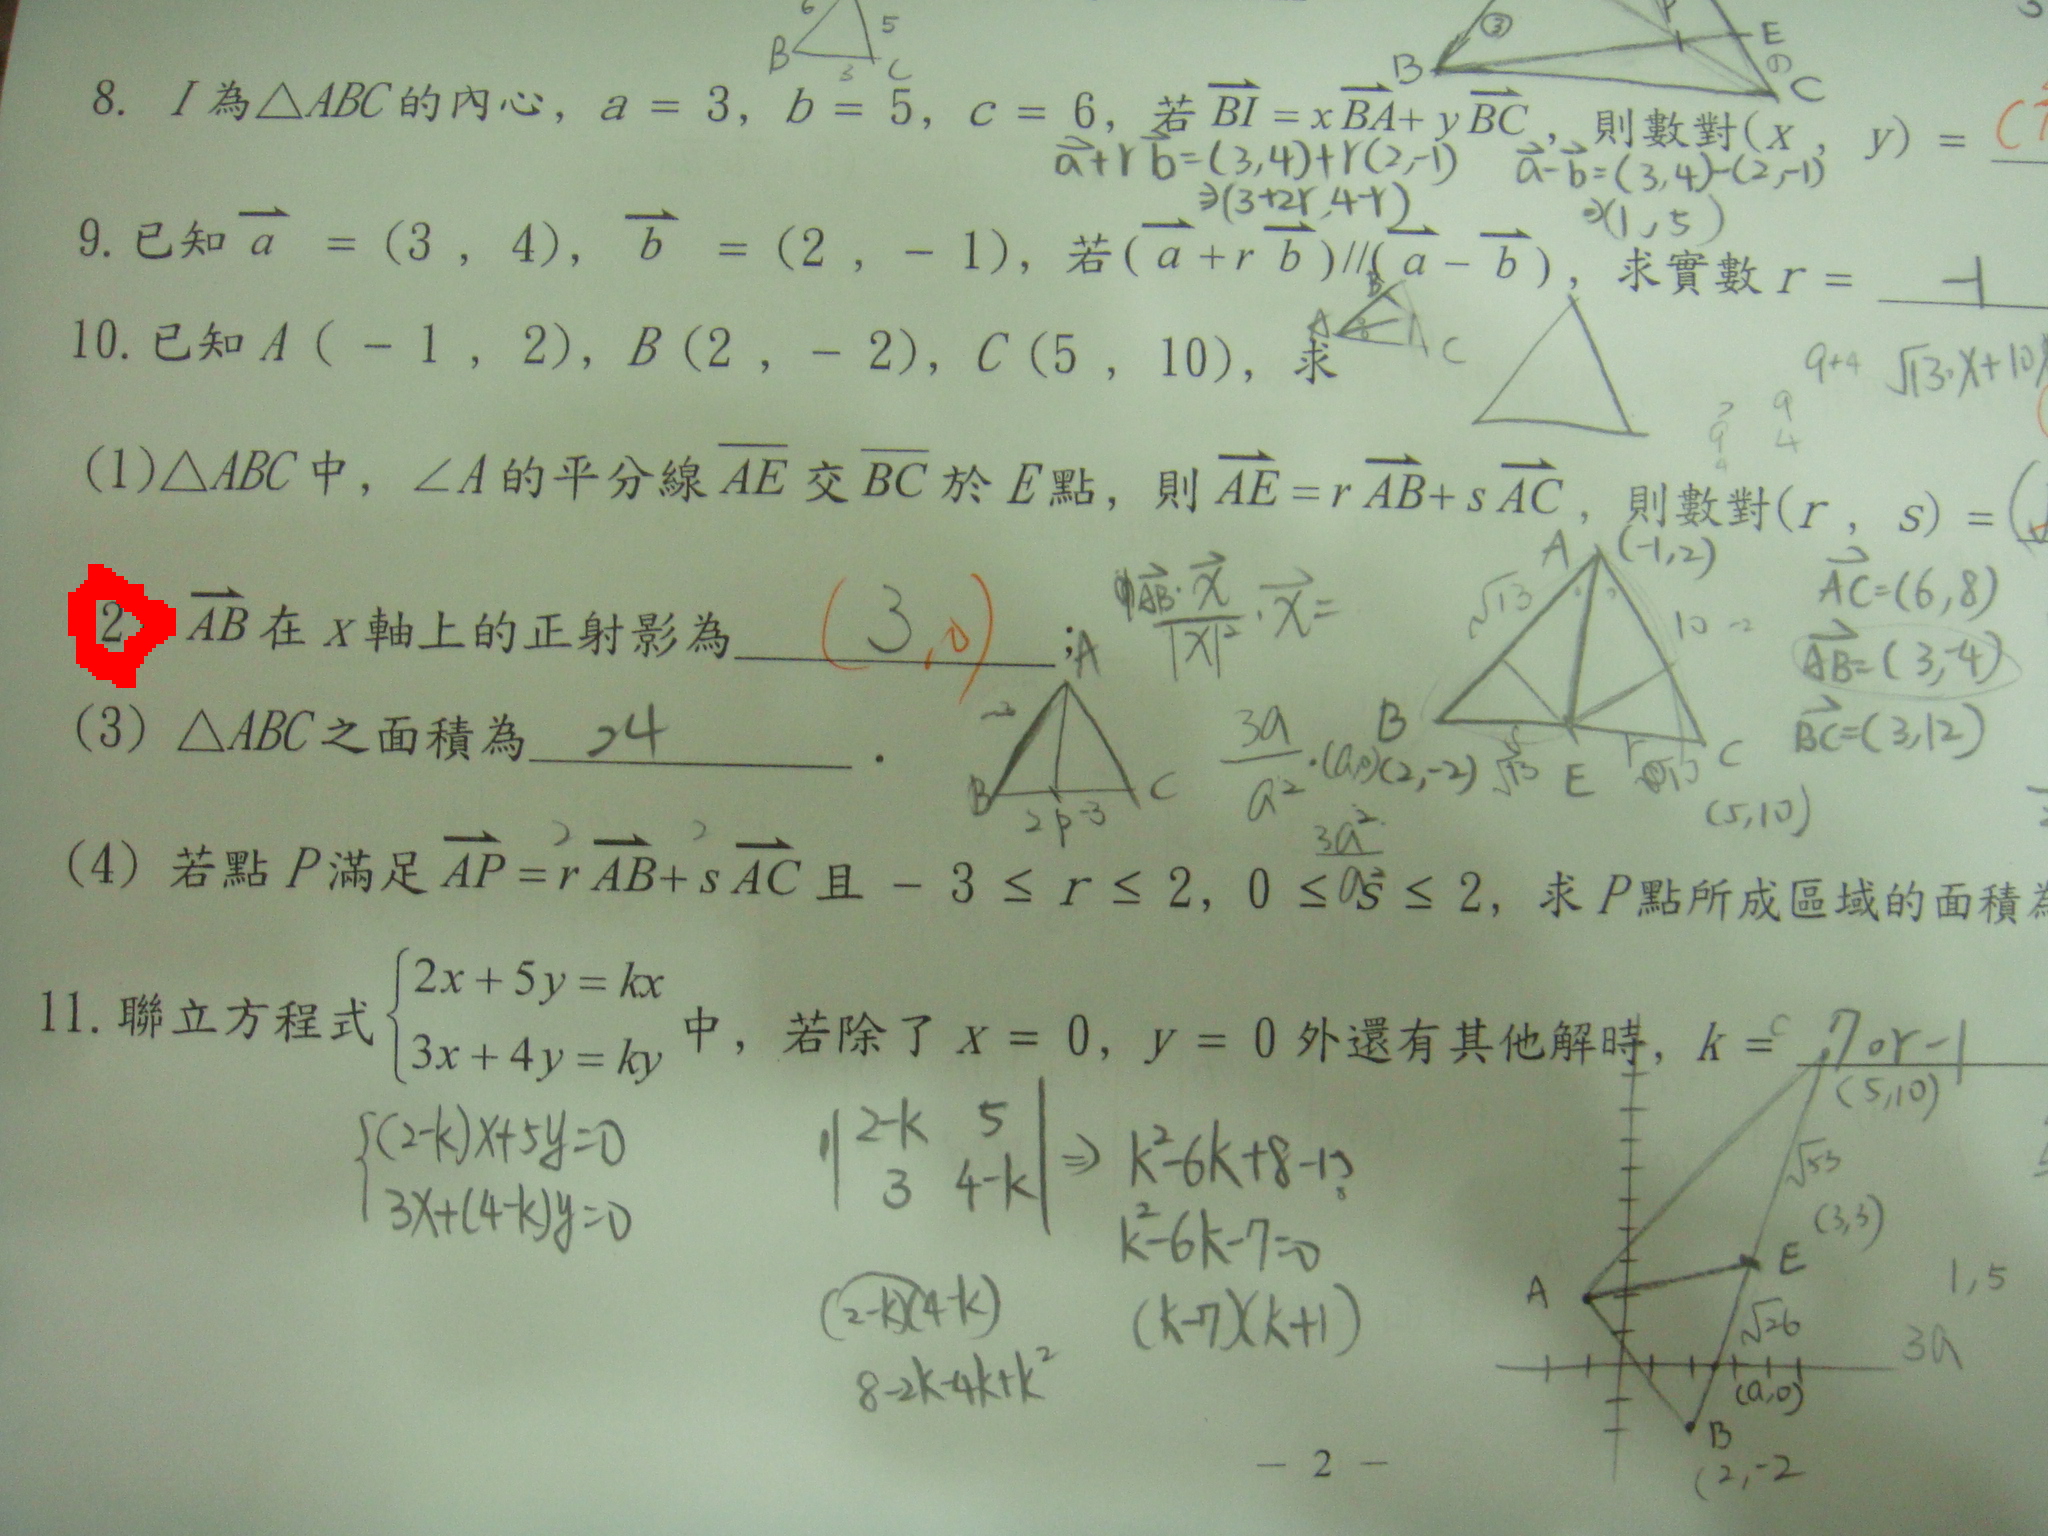 6
5
B
3
C
③
P
E
B
C
8. I 為△ABC的內心, a = 3, b = 5, c = 6, 若 BI = xBA + yBC, 則數對(x , y) =
a+rb=(3,4)+r(2,-1)
⇒(3+2r,4-r)
a-b=(3,4)-(2,-1)
⇒(1,5)
9. 已知 a = (3 , 4), b = (2 , - 1), 若( a + r b )//( a - b ), 求實數 r = -1
10. 已知 A ( - 1 , 2), B (2 , - 2), C (5 , 10), 求
B
A
C
9+4
√13·x+10
9
4
(1)△ABC中, ∠A的平分線 AE 交 BC 於 E點, 則 AE = r AB + s AC , 則數對(r , s) = (
2 AB 在 x 軸上的正射影為 (3,0) ;
AB·x/|x|²·x=
A (-1,2)
√13
10
AC=(6,8)
AB=(3,-4)
BC=(3,12)
(3) △ABC之面積為 24 .
A
B
C
2 P 3
3a/a²·(a,0)
B
(2,-2)
√13
E
C
(5,10)
3a²/a²
(4) 若點 P滿足 AP = r AB + s AC 且 - 3 ≤ r ≤ 2, 0 ≤ s ≤ 2, 求 P點所成區域的面積為
11. 聯立方程式 { 2x + 5y = kx
3x + 4y = ky
中, 若除了 x = 0, y = 0 外還有其他解時, k = 7 or -1
C
(5,10)
{(2-k)x+5y=0
3x+(4-k)y=0
|2-k 5
3 4-k|
⇒ k²-6k+8-15
k²-6k-7=0
(k-7)(k+1)
(2-k)(4-k)
8-2k-4k+k²
√53
(3,3)
A
E
√26
1,5
3a
(a,0)
B
(2,-2
- 2 -